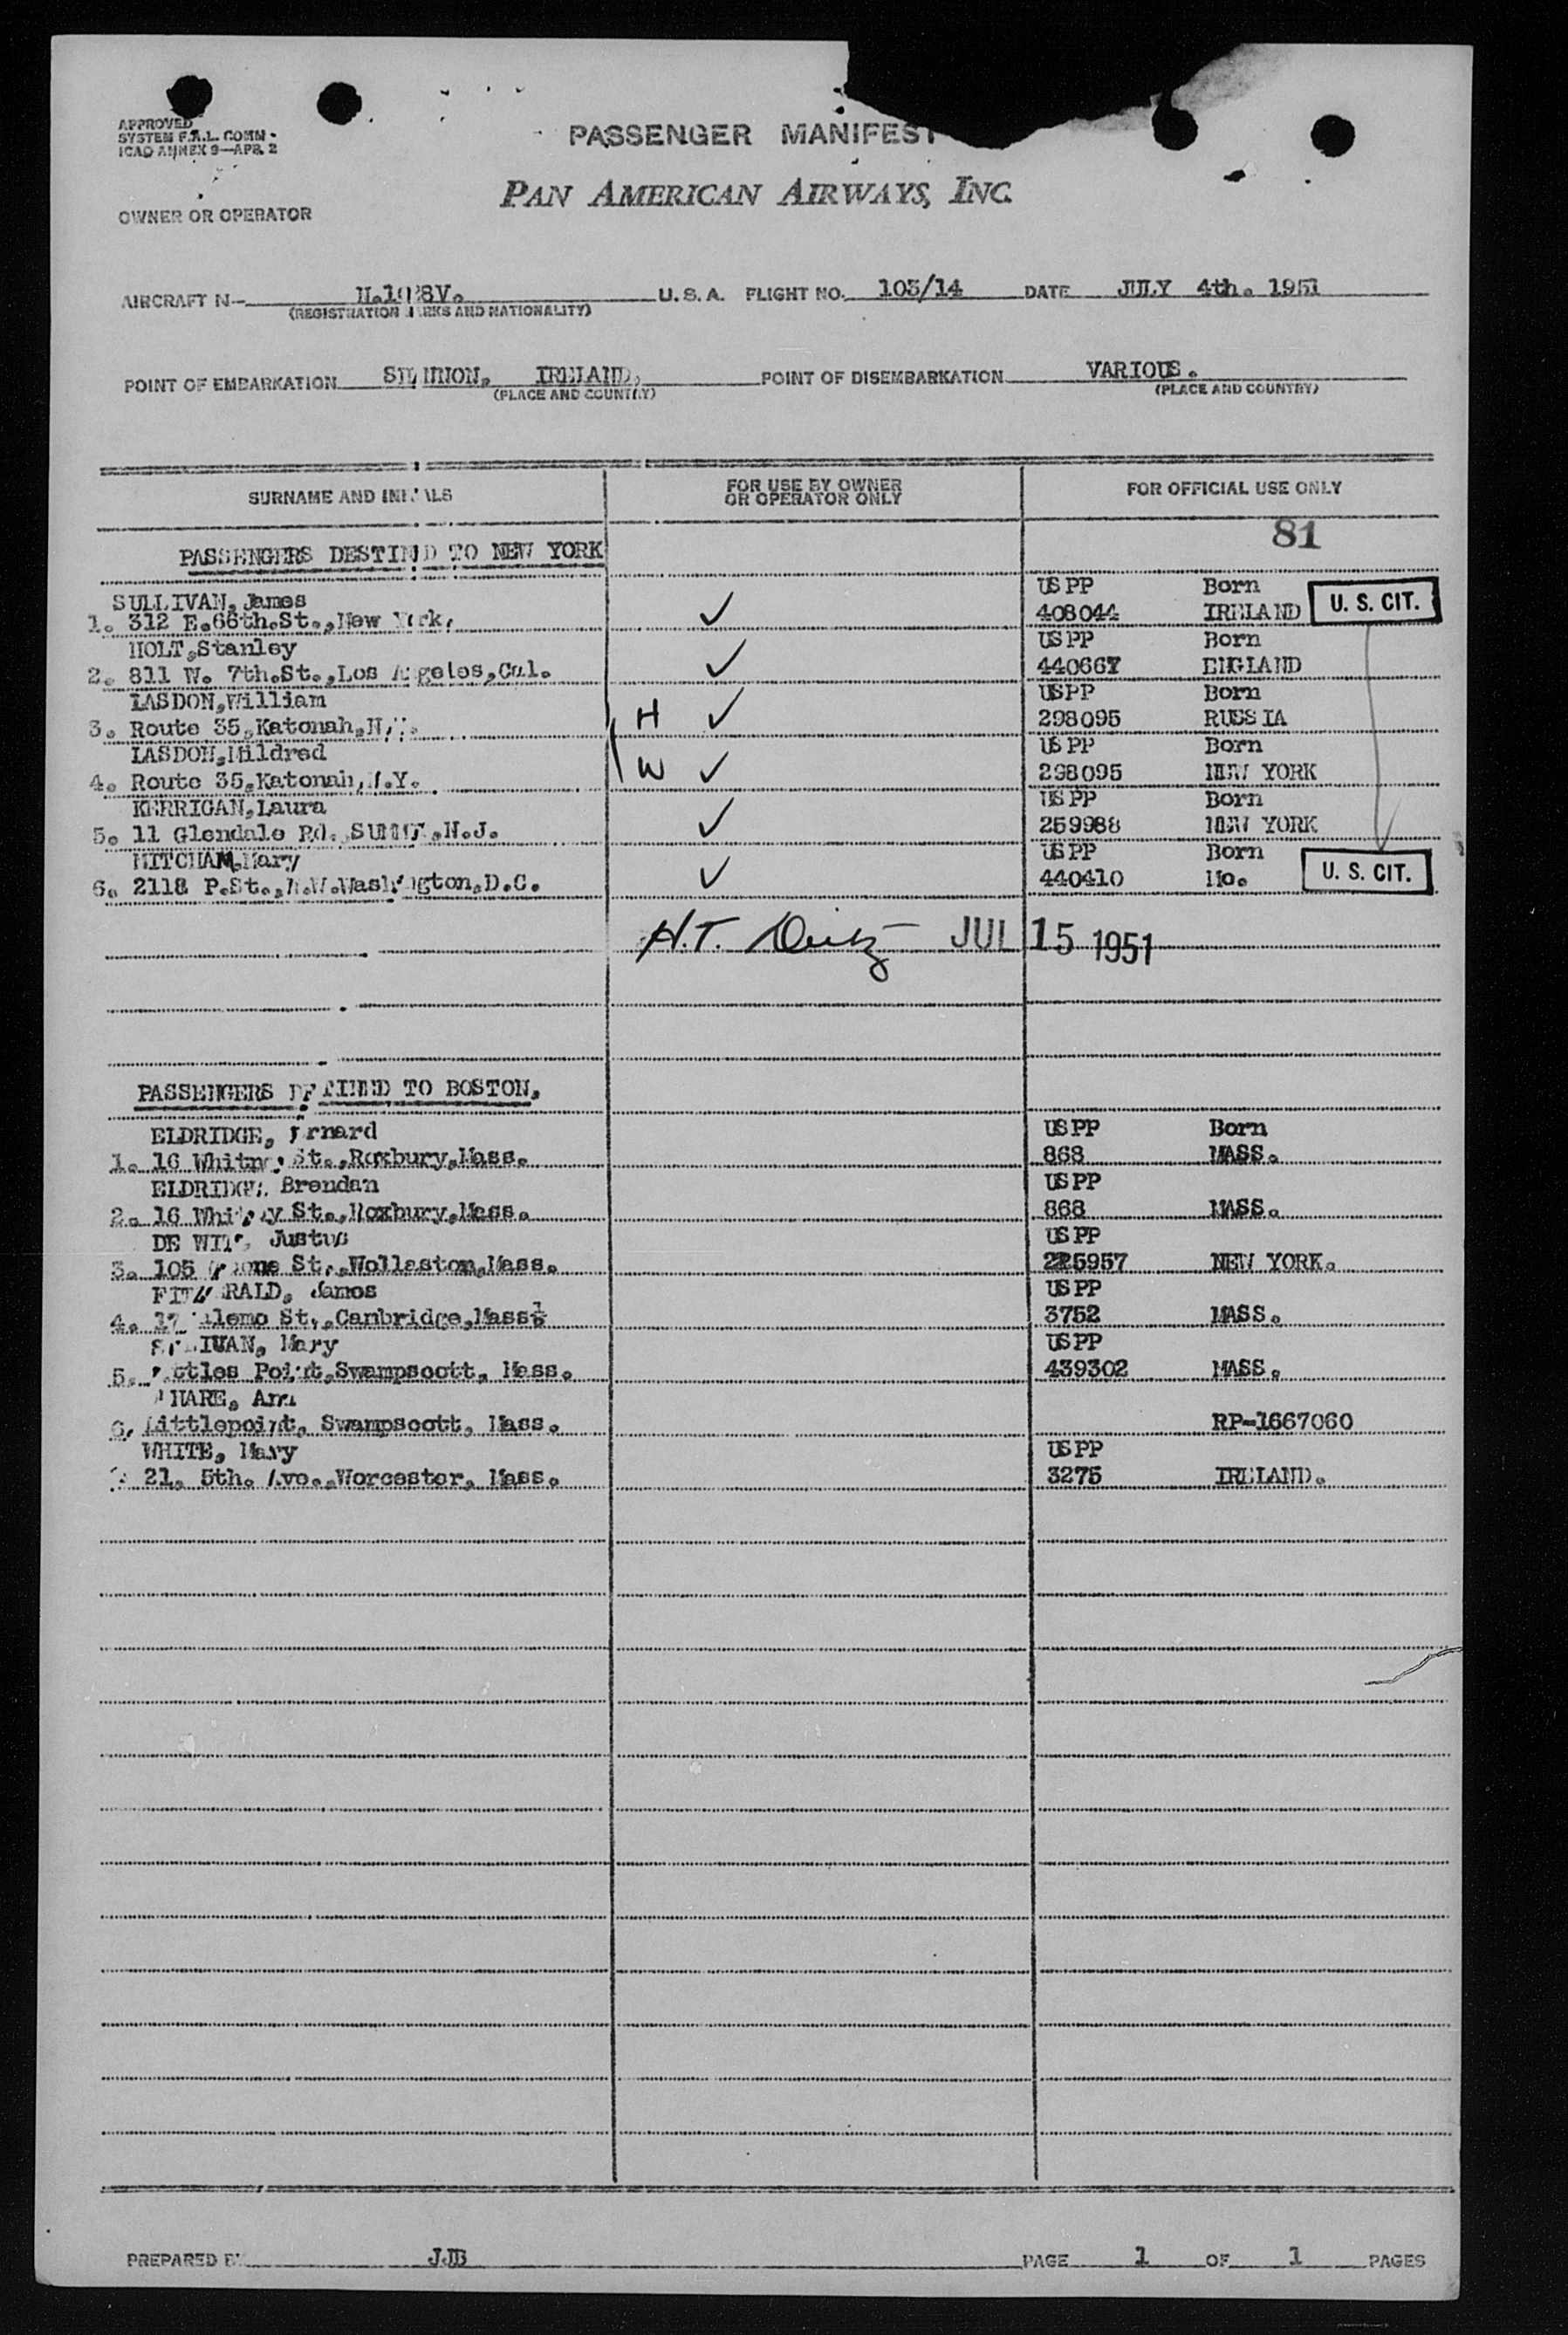 APPROVED
SYSTEM F.A.L. COMM -
ICAO ANNEX 9—APR. 2
PASSENGER MANIFEST
PAN AMERICAN AIRWAYS, INC.
OWNER OR OPERATOR
AIRCRAFT N— U.S.A. FLIGHT NO. 103/14 DATE JULY 4th. 1951
(REGISTRATION MARKS AND NATIONALITY)
POINT OF EMBARKATION IRELAND, POINT OF DISEMBARKATION VARIOUS.
(PLACE AND COUNTRY) (PLACE AND COUNTRY)
SURNAME AND INITIALS FOR USE BY OWNER OR OPERATOR ONLY FOR OFFICIAL USE ONLY
81
PASSENGERS DESTIND TO NEW YORK
SULLIVAN, James USPP Born
1. 312 E.66th.St.,New York, ✓ 408044 IRELAND U. S. CIT.
HOLT,Stanley USPP Born
2. 811 W. 7th.St.,Los Angeles,Cal. ✓ 440667 ENGLAND
LASDON,William USPP Born
3. Route 35,Katonah,N.Y. H ✓ 298095 RUSSIA
LASDON,Mildred USPP Born
4. Route 35,Katonah,N.Y. W ✓ 298095 NEW YORK
KERRIGAN,Laura USPP Born
5. 11 Glendale Rd. ,N.J. ✓ 259988 NEW YORK
MITCHAM,Mary USPP Born
6. 2118 P.St.,N.W.Washington,D.C. ✓ 440410 Mo. U. S. CIT.
H.T. JUL 15 1951
PASSENGERS TO BOSTON,
ELDRIDGE, USPP Born
1. 16 Whitney St.,Roxbury,Mass. 868 MASS.
ELDRIDGE, Brendan USPP
2. 16 Whitney St.,Roxbury,Mass. 868 MASS.
DE WITT, Justus USPP
3. 105 St.,Wollaston,Mass. 225957 NEW YORK.
FITZGERALD, James USPP
4. St.,Cambridge,Mass. 3752 MASS.
SULLIVAN, Mary USPP
5. Point,Swampscott, Mass. 439302 MASS.
Ann
6. Littlepoint, Swampscott, Mass. RP-1667060
WHITE, Mary USPP
21, 5th. Ave.,Worcester, Mass. 3275 IRELAND.
PREPARED BY JJB PAGE 1 OF 1 PAGES